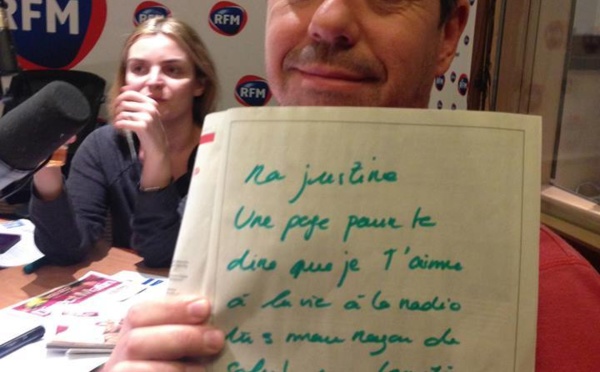 RFM
RFM
RFM
RFM
Ma justine
Une page pour te
dire que je T'aime
à la vie à la radio
tu s mon rayon de